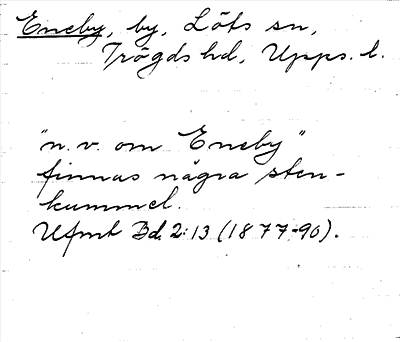 Eneby, by, Löts sn,
Trögds hd, Upps. l.
"n. v. om Eneby"
finnas några sten-
kummel.
Ufmt Bd. 2:13 (1877-90).